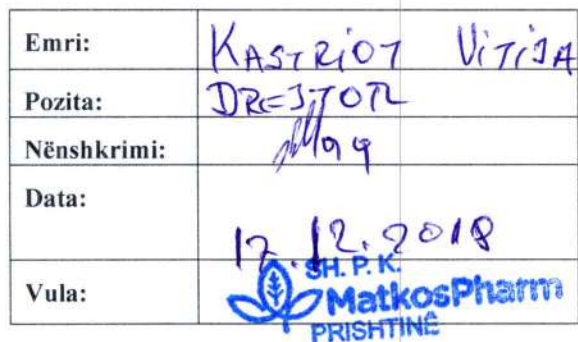 Emri: KASTRIOT VITIJA
Pozita: DREJTOR
Nënshkrimi:
Data: 17.12.2018
Vula: SH. P. K.
MatkosPharm
PRISHTINË